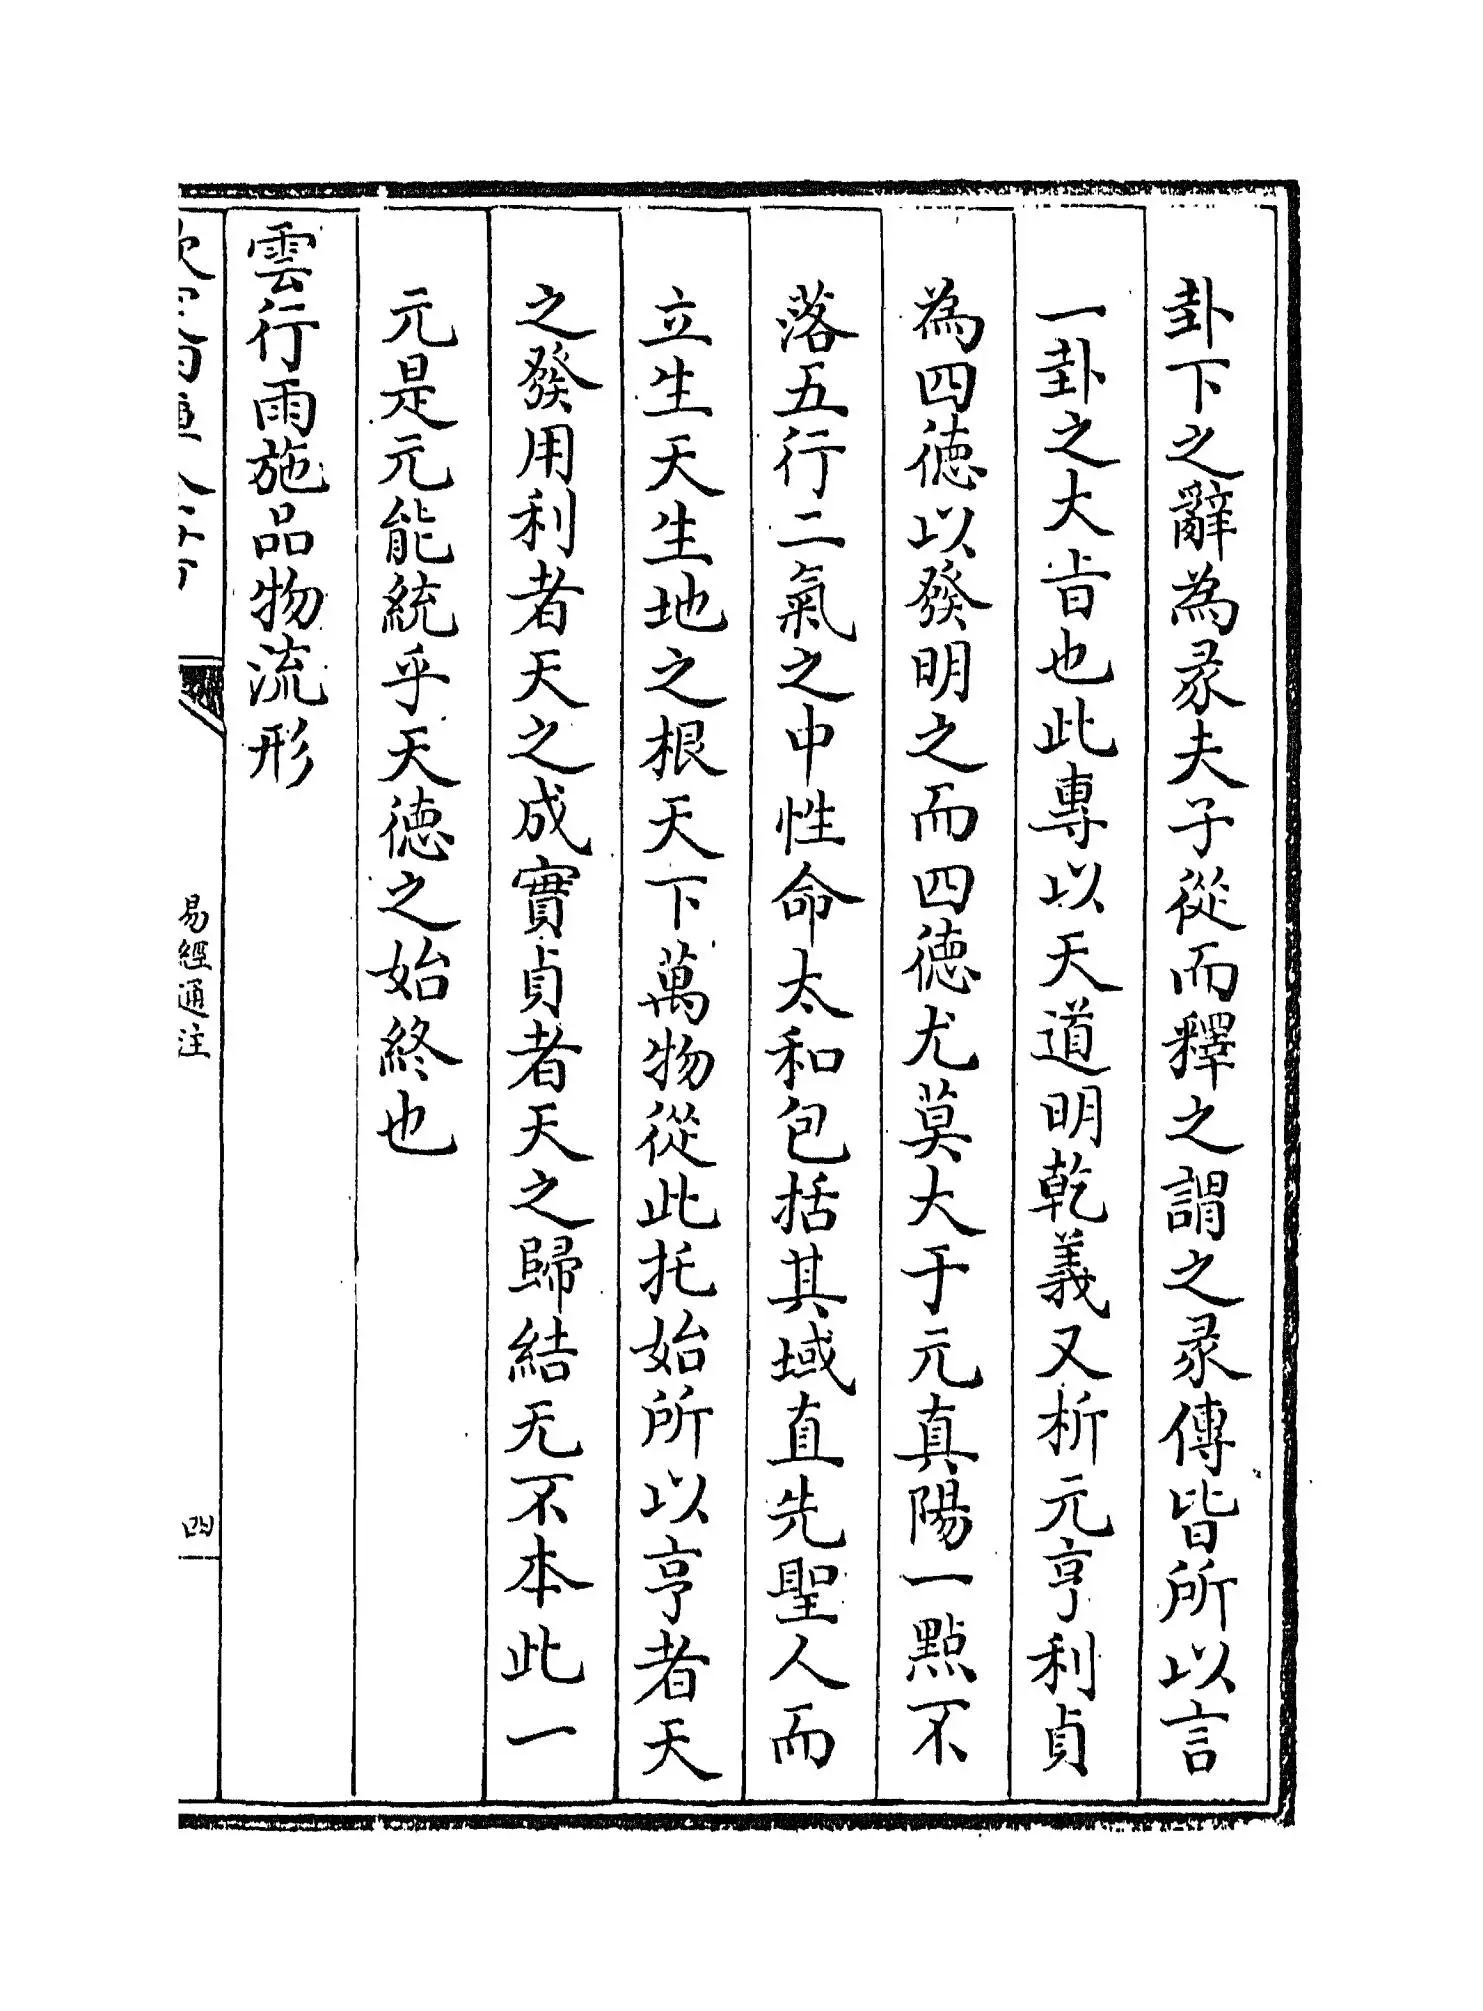 卦下之辭為彖夫子從而釋之謂之彖傳皆所以言
一卦之大㫖也此專以天道明乾義又析元亨利貞
為四徳以發明之而四徳尤莫大于元真陽一㸃不
落五行二氣之中性命太和包括其域直先聖人而
立生天生地之根天下萬物從此托始所以亨者天
之發用利者天之成實貞者天之歸結无不本此一
元是元能統乎天徳之始終也
雲行雨施品物流形
易經通注
四